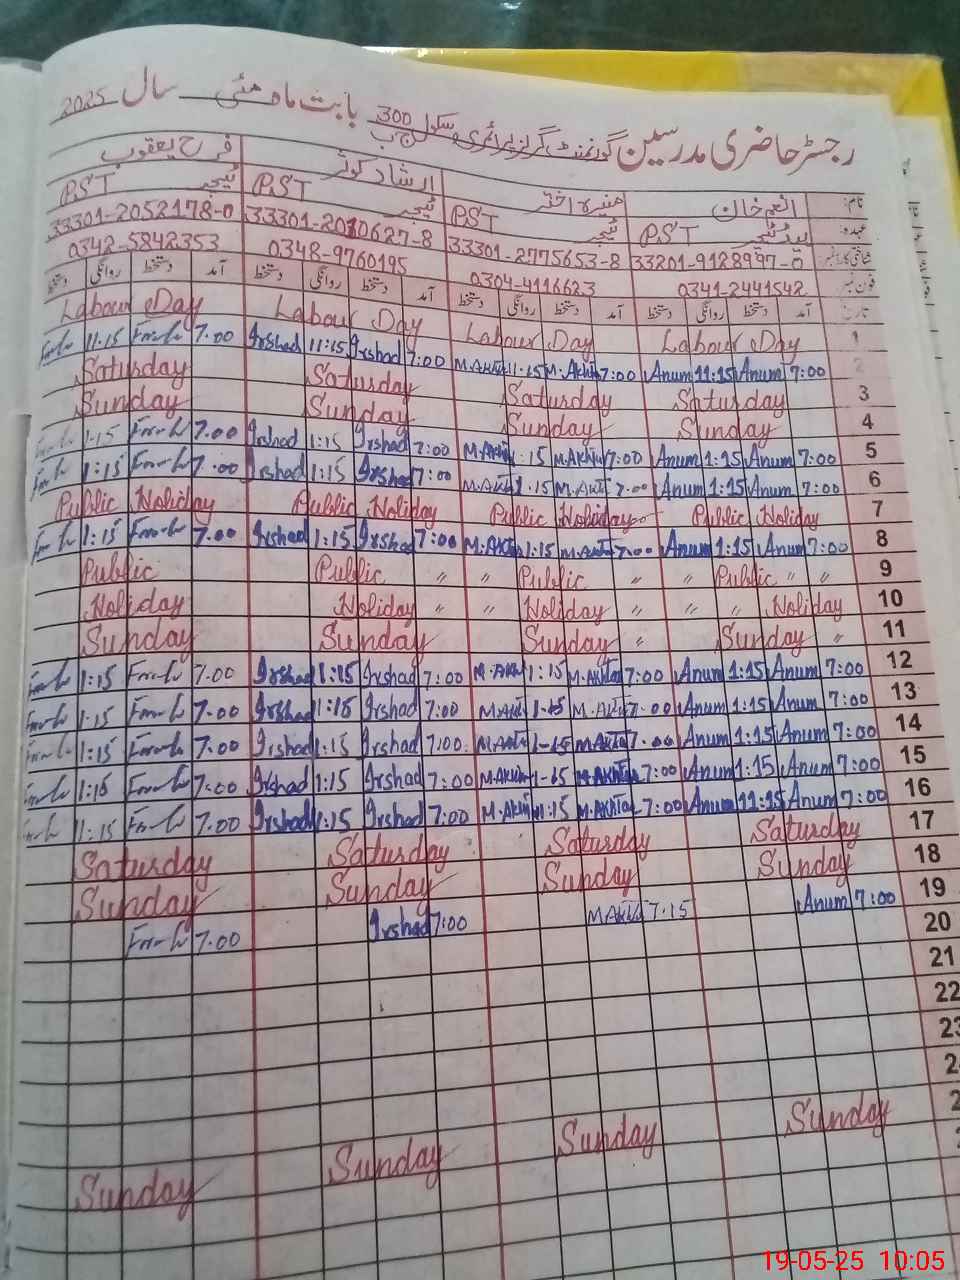 رجسٹر حاضری مدرسین گورنمنٹ گرلز پرائمری سکول 300 ج ب بابت ماہ مئی سال 2025
نام: انعم خان منیرہ اختر ارشاد کوثر فرح یعقوب
عہدہ: ہیڈ ٹیچر PST ٹیچر PST ٹیچر PST ٹیچر PST
شناختی کارڈ نمبر 33201-9128997-0 33301-2775653-8 33301-2010627-8 33301-2052178-0
فون نمبر 0341-2441542 0304-4116623 0348-9760195 0342-5842353
تاریخ آمد دستخط روانگی دستخط آمد دستخط روانگی دستخط آمد دستخط روانگی دستخط آمد دستخط روانگی دستخط
Labour Day Labour Day Labour Day Labour Day 1
11:15 7.00 Irshad 11:15 Irshad 7:00 M.Akhtar 11.15 M.Akhtar 7:00 Anum 11:15 Anum 7:00 2
Saturday Saturday Saturday Saturday 3
Sunday Sunday Sunday Sunday 4
1.15 7.00 Irshad 1:15 Irshad 7:00 M.Akhtar 1:15 M.Akhtar 7:00 Anum 1:15 Anum 7:00 5
1:15 7.00 Irshad 1:15 Irshad 7:00 M.Akhtar 1.15 M.Akhtar 7.00 Anum 1:15 Anum 7:00 6
Public Holiday Public Holiday Public Holiday Public Holiday 7
1:15 7.00 Irshad 1:15 Irshad 7:00 M.Akhtar 1:15 M.Akhtar 7.00 Anum 1:15 Anum 7:00 8
Public Public " " Public " " Public " " 9
Holiday Holiday " " Holiday " " " Holiday 10
Sunday Sunday Sunday " Sunday " 11
1:15 7.00 Irshad 1:15 Irshad 7:00 M.Akhtar 1:15 M.Akhtar 7:00 Anum 1:15 Anum 7:00 12
1:15 7.00 Irshad 1:15 Irshad 7:00 M.Akhtar 1-15 M.Akhtar 7.00 Anum 1:15 Anum 7:00 13
1:15 7:00 Irshad 1:15 Irshad 7:00 M.Akhtar 1-15 M.Akhtar 7.00 Anum 1:15 Anum 7:00 14
1:15 7:00 Irshad 1:15 Irshad 7:00 M.Akhtar 1-15 M.Akhtar 7:00 Anum 1:15 Anum 7:00 15
11:15 7.00 Irshad 11:15 Irshad 7:00 M.Akhtar 11:15 M.Akhtar 7:00 Anum 11:15 Anum 7:00 16
Saturday Saturday Saturday Saturday 17
Sunday Sunday Sunday Sunday 18
7.00 Irshad 7:00 M.Akhtar 7.15 Anum 7:00 19
20
21
22
23
Sunday Sunday Sunday Sunday
19-05-25 10:05